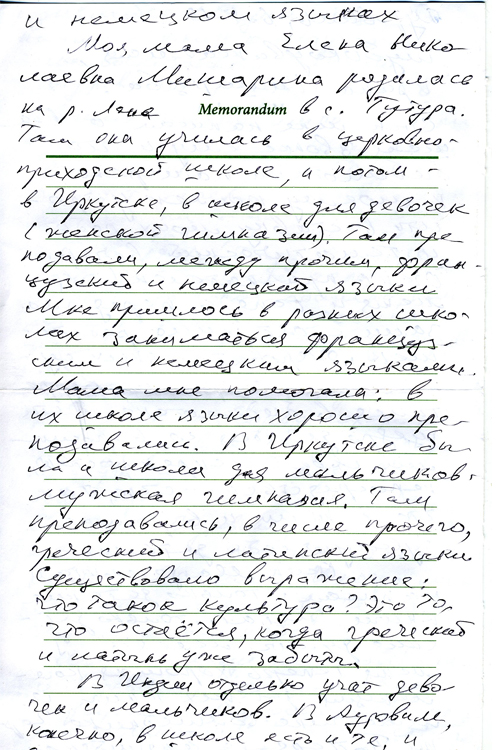 и немецком языках
Моя мама Елена Нико-
лаевна Мишарина родилась
на р. Лена Memorandum в с. Тутура.
Там она училась в церковно-
приходской школе, а потом -
в Иркутске, в школе для девочек
(женской гимназии). Там пре-
подавали, между прочим, фран-
цузский и немецкий языки
Мне пришлось в разных шко-
лах заниматься француз-
ским и немецким языками.
Мама мне помогала: в
их школе языки хорошо пре-
подавали. В Иркутске бы-
ла и школа для мальчиков -
мужская гимназия. Там
преподавались, в числе прочего,
греческий и латинский языки.
Существовало выражение:
что такое культура? Это то,
что остаётся, когда греческий
и латынь уже забыты.
В Индии отдельно учат дево-
чек и мальчиков. В Ауровиле,
конечно, в школе есть и те, и